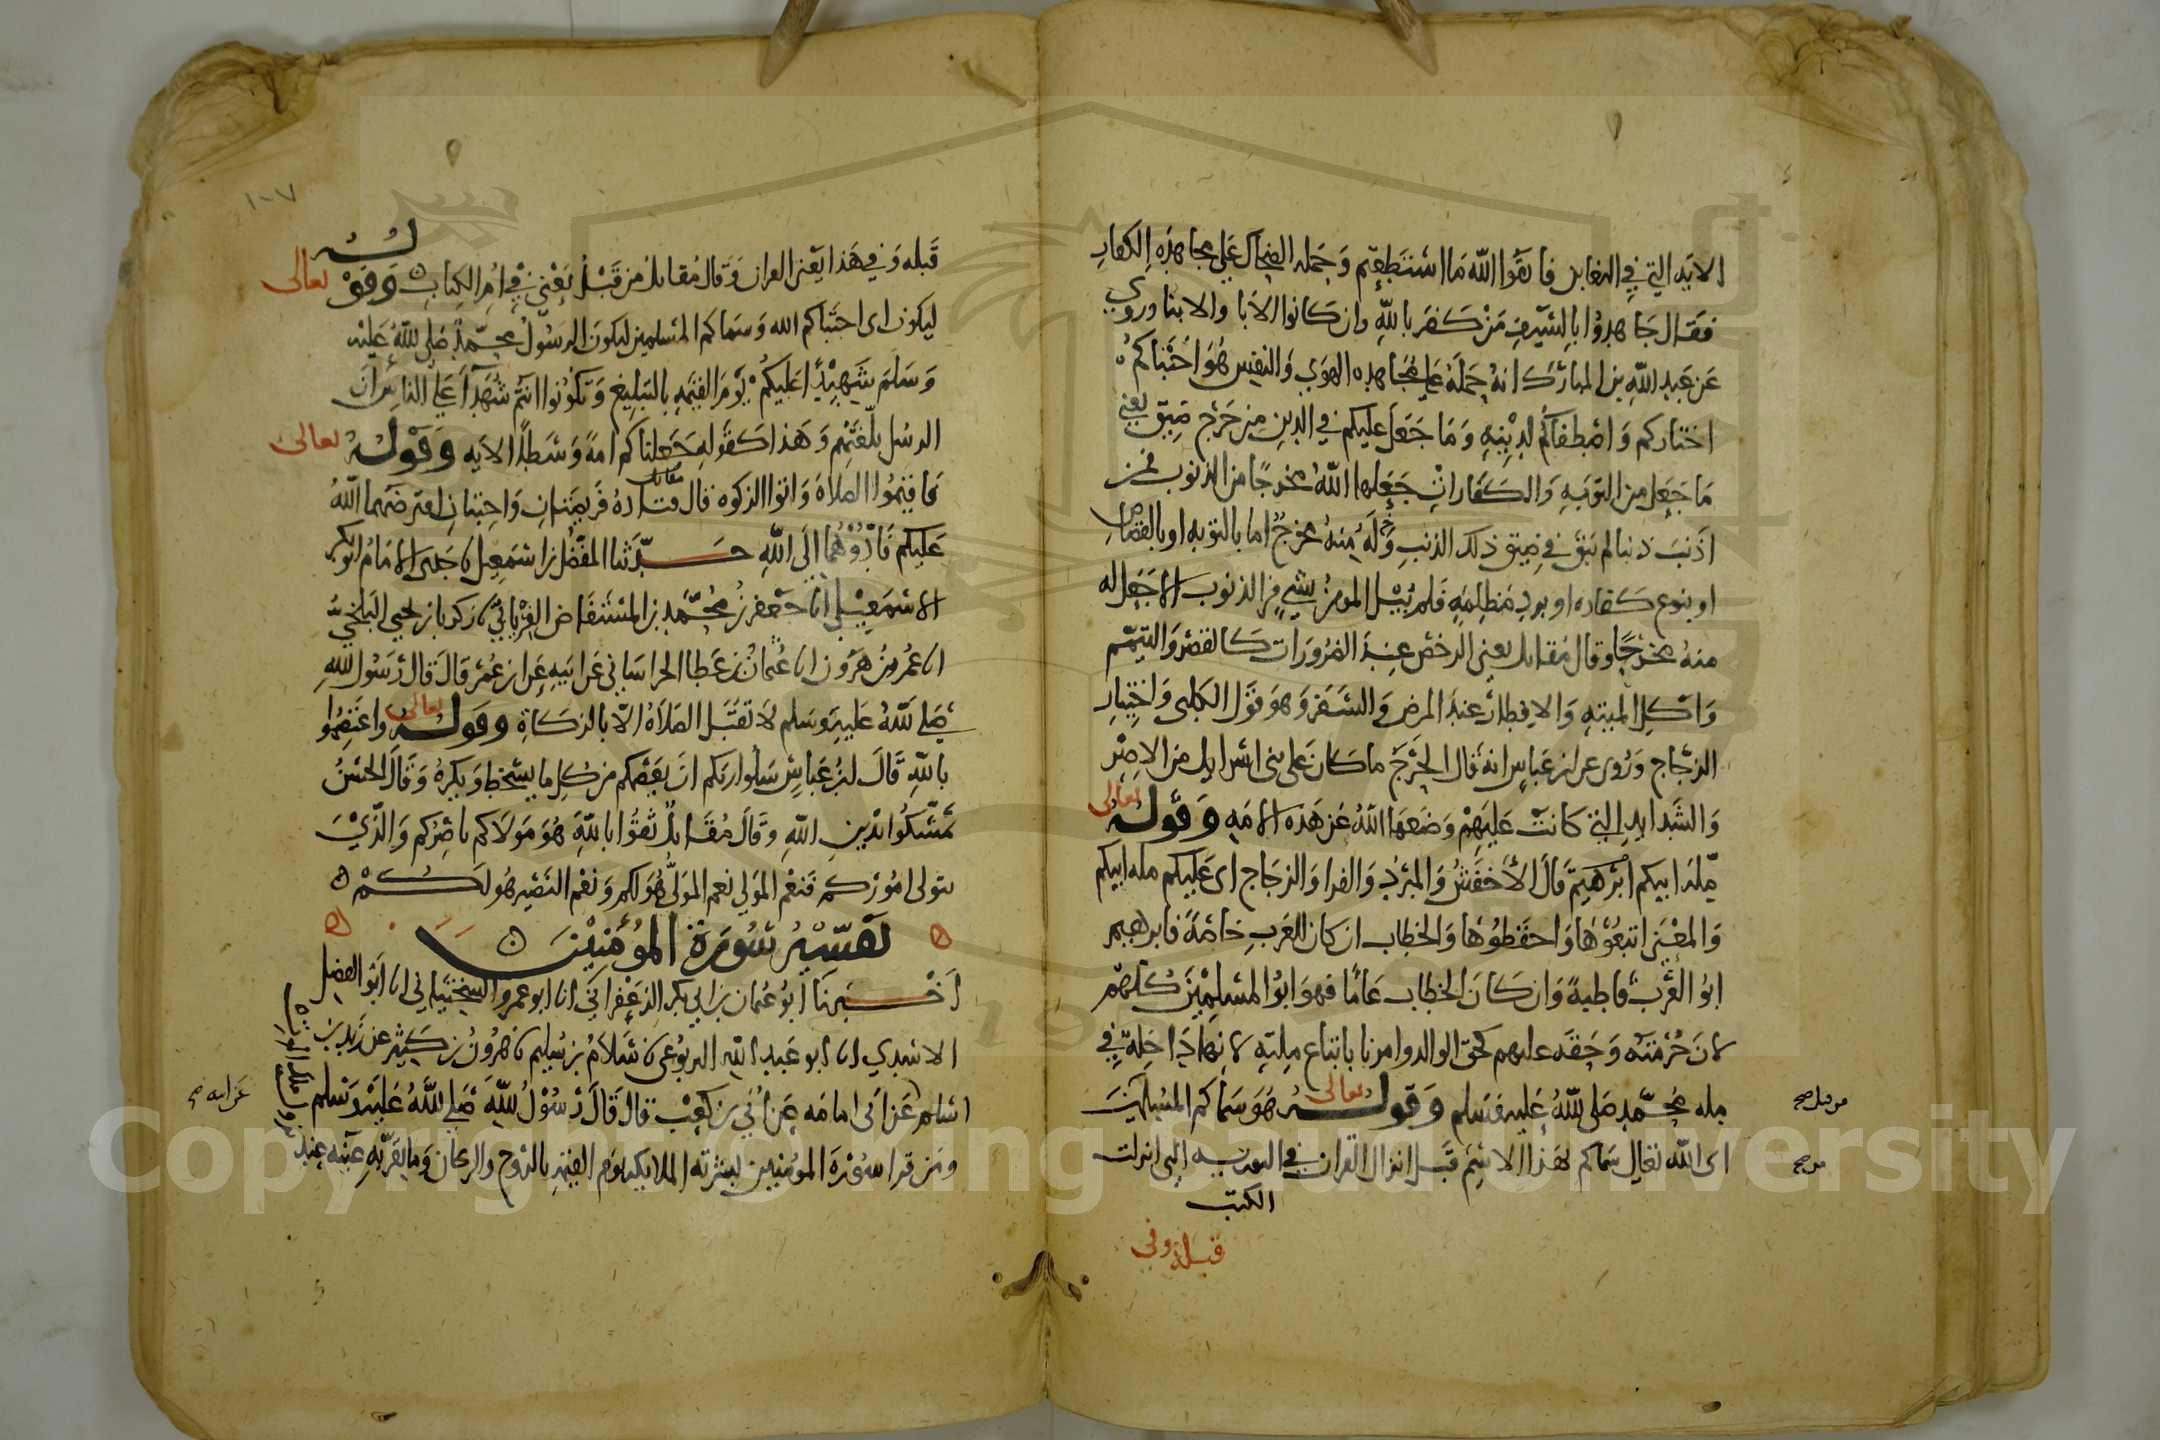 الايه التي في التغابن فاتقوا الله ما استطعتم وحمله الضحاك على مجاهدة الكفار
فقال جاهدوا بالسيف من كفر بالله وان كانوا الابا والابنا وروي
عن عبد الله بن المبارك انه حمله على مجاهده الهوي والنفس هو اجتباكم
اختاركم واصطفاكم لدينه وما جعل عليكم في الدين من حرج ضيق يعني
ما جعل من التوبه والكفارات جعلها الله مخرجا من الذنوب فمن
اذنب ذنبا لم يبق في ضيق ذلك الذنب وله منه مخرج اما بالتوبه او بالقصاص
او بنوع كفاره او برد مظلمه فلم يبتل المومن بشي من الذنوب الا جعل له
منه مخرجا وقال مقاتل يعني الرخص عند الضرورات كالقصر والتيمم
واكل الميته والافطار عند المرض والسفر وهو قول الكلبي واختيار
الزجاج وروى عن ابن عباس انه قال الحرج ما كان على بنى اسرايل من الاصر
والشدايد التي كانت عليهم وضعها الله عن هذه الامه وقوله تعالى
ملة ابيكم ابرهيم قال الاخفش والمبرد والفرا والزجاج اى عليكم مله ابيكم
والمعنى اتبعوها واحفظوها والخطاب ان كان للعرب خاصة فابرهيم
ابو العرب قاطبة وان كان الخطاب عاما فهو ابو المسلمين كلهم
لان حرمته وحقه عليهم كحق الوالد وامرنا باتباع ملته لانها داخلة في
مله محمد صلى الله عليه وسلم وقوله تعالى هو سماكم المسلمين
من قبل صح
اى الله تعالى سماكم بهذا الاسم قبل انزال القران في الكتب التي انزلت
صح
الكتب
قبله وفي
١٠٧
قبله وفي هذا يعنى القران وقال مقاتل من قبل يعني في ام الكتاب وقوله تعالى
ليكون اى اجتباكم الله وسماكم المسلمين ليكون الرسول محمد صلى الله عليه
وسلم شهيدا عليكم يوم القيمه بالتبليغ وتكونوا انتم شهدآ على الناس ان
الرسل بلغتهم وهذا كقوله جعلناكم امة وسطا الايه وقوله تعالى
فاقيموا الصلاة واتوا الزكوه قال مقاتل فريضتان واجبتان افترضهما الله
عليكم فادوهما الى الله حدثنا المفضل بن اسمعيل نا جدى الامام ابو بكر
الاسمعيلي انا جعفر بن محمد بن المستفاض الفريابي نا زكريا بن يحيى البلخي
انا عمر بن هرون انا عثمان بن عطا الخراساني عن ابيه عن ابن عمر قال قال رسول الله
صلى الله عليه وسلم لا تقبل الصلاة الا بالزكاة وقوله تعالى واعتصموا
بالله قال ابن عباس سلوا ربكم ان يعصمكم من كل ما يسخط ويكره وقال الحسن
تمسكوا بدين الله وقال مقاتل ثقوا بالله هو مولاكم ناصركم والذي
يتولى اموركم فنعم المولى نعم المولى هو لكم ونعم النصير هو لكم
تفسير سورة المؤمنين
اخبرنا ابو عثمان بن ابي بكر الزعفراني انا ابو عمرو السختياني انا ابو الفضل
الاسدي انا ابو عبد الله اليربوعى نا سلام بن سليم نا هرون بن كثير عن زيد بن
اسلم عن ابى امامه عن ابي بن كعب قال قال رسول الله صلى الله عليه وسلم
عن ابيه صح
ومن قرا سورة المومنين بشرته الملايكه يوم القيمه بالروح والريحان وما تقر به عينه عند
Copyright © King Saud University